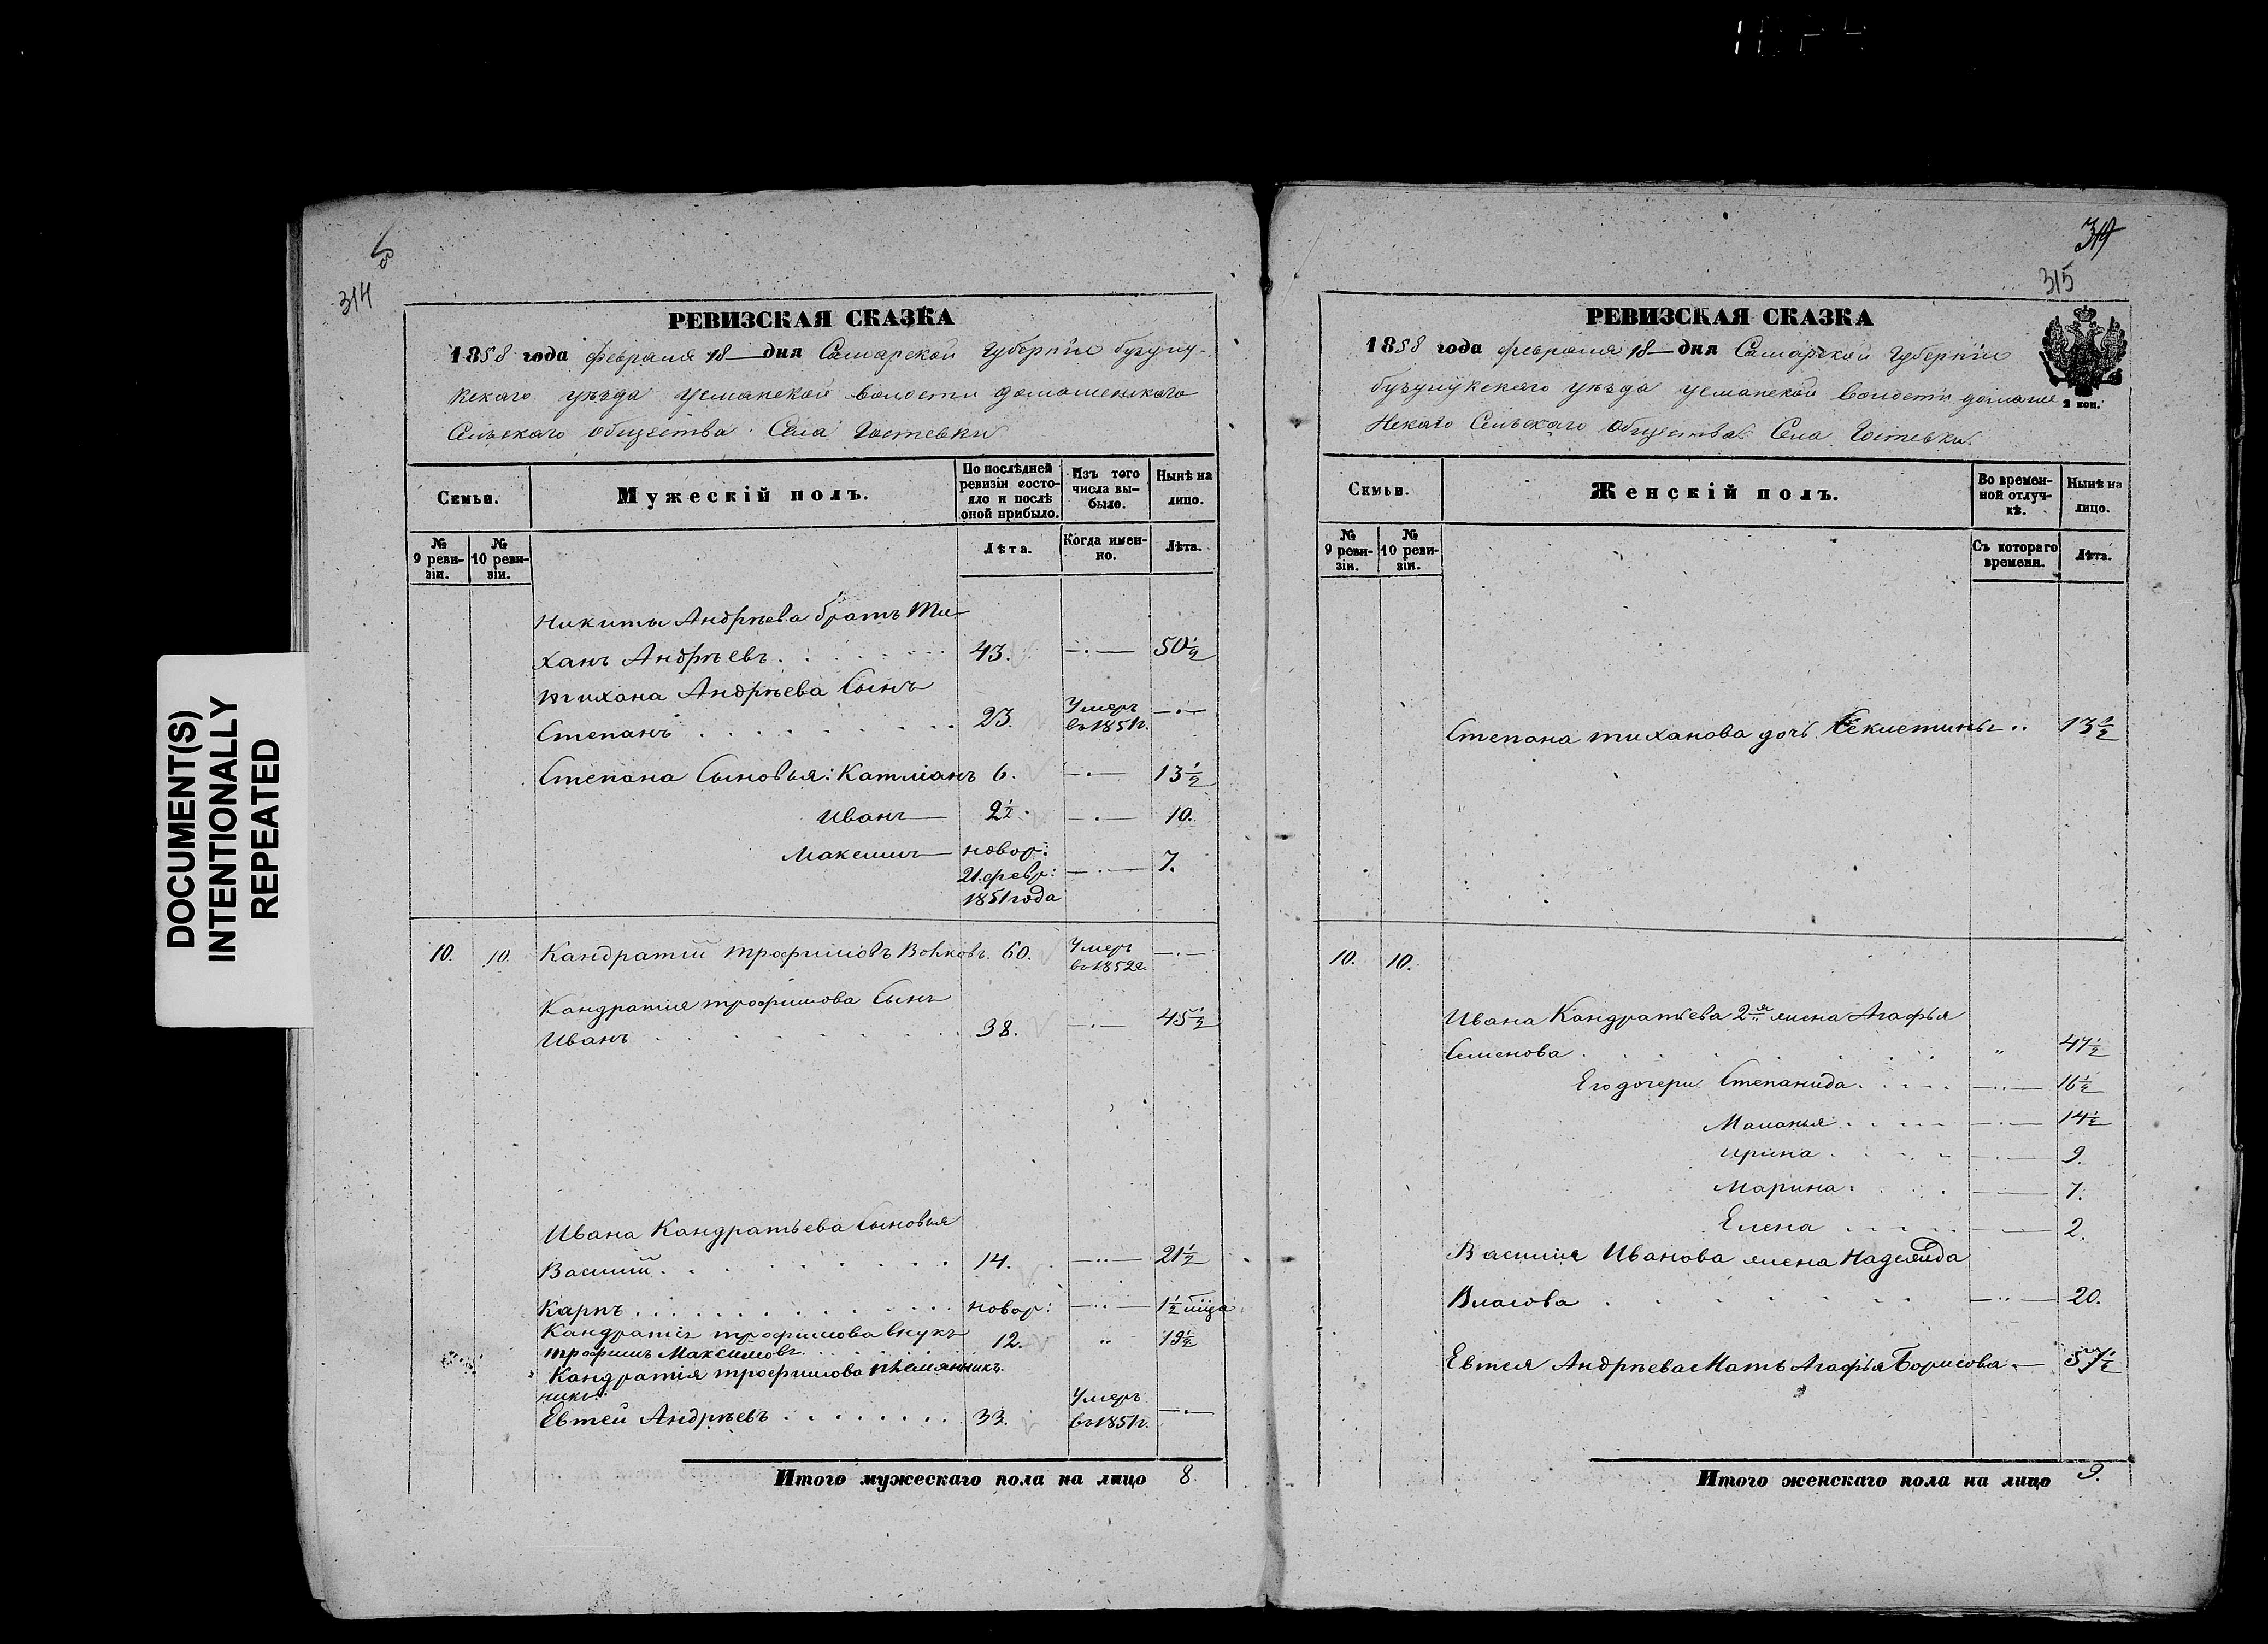 DOCUMENT(S)
INTENTIONALLY
REPEATED
314
РЕВИЗСКАЯ СКАЗКА
1858 года февраля 18 дня Самарской Губерніи бузулу-
кскаго уѣзда усманской волости домашенскаго
Сельскаго общества Села Гостевки
Семьи.
Мужескій полъ.
По послѣдней ревизіи состо-яло и послѣ оной прибыло.
Изъ того числа вы-было.
Ныне на лицо.
№ 9 реви-зіи.
№ 10 реви-зіи.
Лѣта.
Когда имен-но.
Лѣта.
Никиты Андрѣева братъ Ти-
ханъ Андрѣевъ 43. 50½
тихана Андрѣева Сынъ
Степанъ 23. Умеръ въ 1851г.
Степана Сыновья: Катміанъ 6. 13½
Иванъ 2½. 10.
Максимъ новор: 7.
21. февр:
1851 года
10. 10. Кандратій трофимовъ Волковъ. 60. Умеръ въ 1852г.
Кандратія трофимова Сынъ
Иванъ 38. 45½
Ивана Кандратьева Сыновья
Василій 14. 21½
Карпъ новор: 1½ мѣца
Кандратія трофимова внукъ
трофимъ Максимовъ 12. 19½
Кандратія трофимова племянникъ
никъ:
Евтей Андрѣевъ 33. Умеръ въ 1851г.
Итого мужескаго пола на лицо 8.
319
315
РЕВИЗСКАЯ СКАЗКА
1858 года февраля 18 дня Самарской Губерніи
бузулукскаго уѣзда усманской волости домаше
2 коп.
нскаго Сельскаго общества Села Гостевки
Семьи.
Женскій полъ.
Во времен-ной отлуч-кѣ.
Ныне на лицо.
№ 9 реви-зіи.
№ 10 реви-зіи.
Съ котораго времени.
Лѣта.
Степана тиханова дочь Секлетинья 13½
10. 10.
Ивана Кандратьева 2я жена Агафья
Семенова 47½
Его дочери Степанида 16½
Маланья 14½
Ирина 9.
Марина 7.
Елена 2.
Василія Иванова жена Надежида
Власова 20.
Евтея Андрѣева Мать Агафья Борисова 57½
Итого женскаго пола на лицо 9.